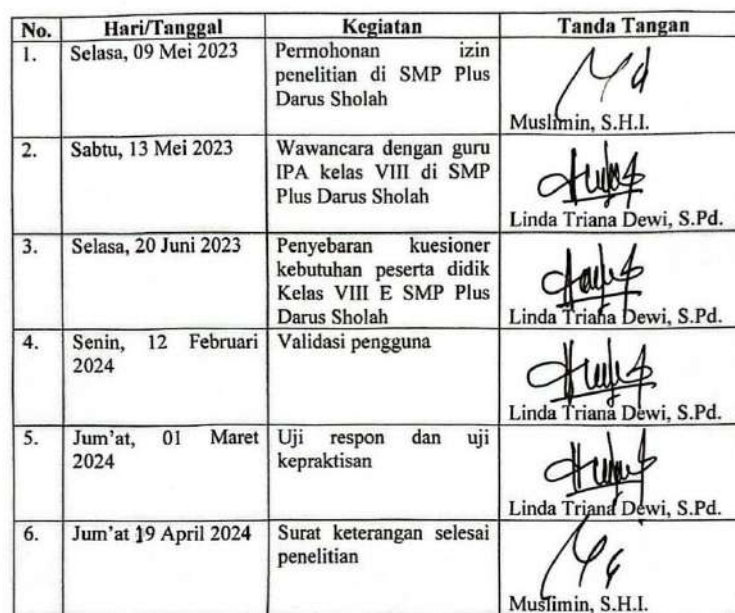 No. Hari/Tanggal Kegiatan Tanda Tangan
1. Selasa, 09 Mei 2023 Permohonan izin
penelitian di SMP Plus
Darus Sholah
Muslimin, S.H.I.
2. Sabtu, 13 Mei 2023 Wawancara dengan guru
IPA kelas VIII di SMP
Plus Darus Sholah
Linda Triana Dewi, S.Pd.
3. Selasa, 20 Juni 2023 Penyebaran kuesioner
kebutuhan peserta didik
Kelas VIII E SMP Plus
Darus Sholah
Linda Triana Dewi, S.Pd.
4. Senin, 12 Februari Validasi pengguna
2024
Linda Triana Dewi, S.Pd.
5. Jum'at, 01 Maret Uji respon dan uji
2024 kepraktisan
Linda Triana Dewi, S.Pd.
6. Jum'at 19 April 2024 Surat keterangan selesai
penelitian
Muslimin, S.H.I.